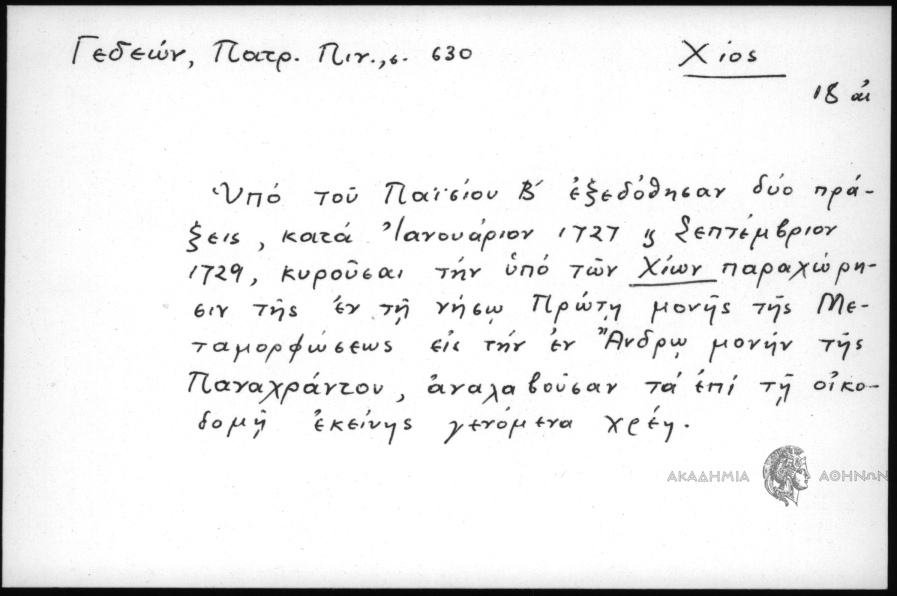 Γεδεών, Πατρ. Πιν., σ. 630
Χίος
18 αἰ
Ὑπό τοῦ Παϊσίου Β΄ ἐξεδόθησαν δύο πρά-
ξεις, κατά Ἰανουάριον 1727 ϗ Σεπτέμβριον
1729, κυροῦσαι τήν ὑπό τῶν Χίων παραχώρη-
σιν τῆς ἐν τῇ νήσῳ Πρώτῃ μονῆς τῆς Με-
ταμορφώσεως εἰς τήν ἐν Ἄνδρῳ μονήν τῆς
Παναχράντου, ἀναλαβοῦσαν τά ἐπί τῇ οἰκο-
δομῇ ἐκείνης γενόμενα χρέη.
ΑΚΑΔΗΜΙΑ ΑΘΗΝΩΝ